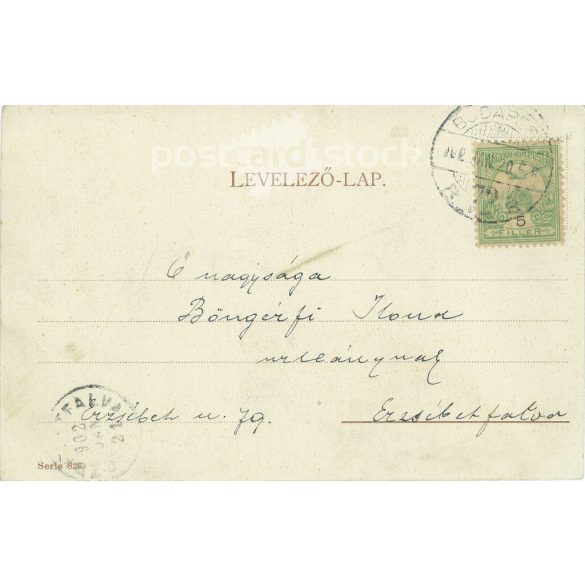 postcard.stock
LEVELEZŐ-LAP.
BUDAPEST
5
FILLÉR
Ő nagysága
Böngérfi Ilona
urleánynak
Erzsébet u. 79. Erzsébetfalva
FALVA
902 JAN 21
Serie 826